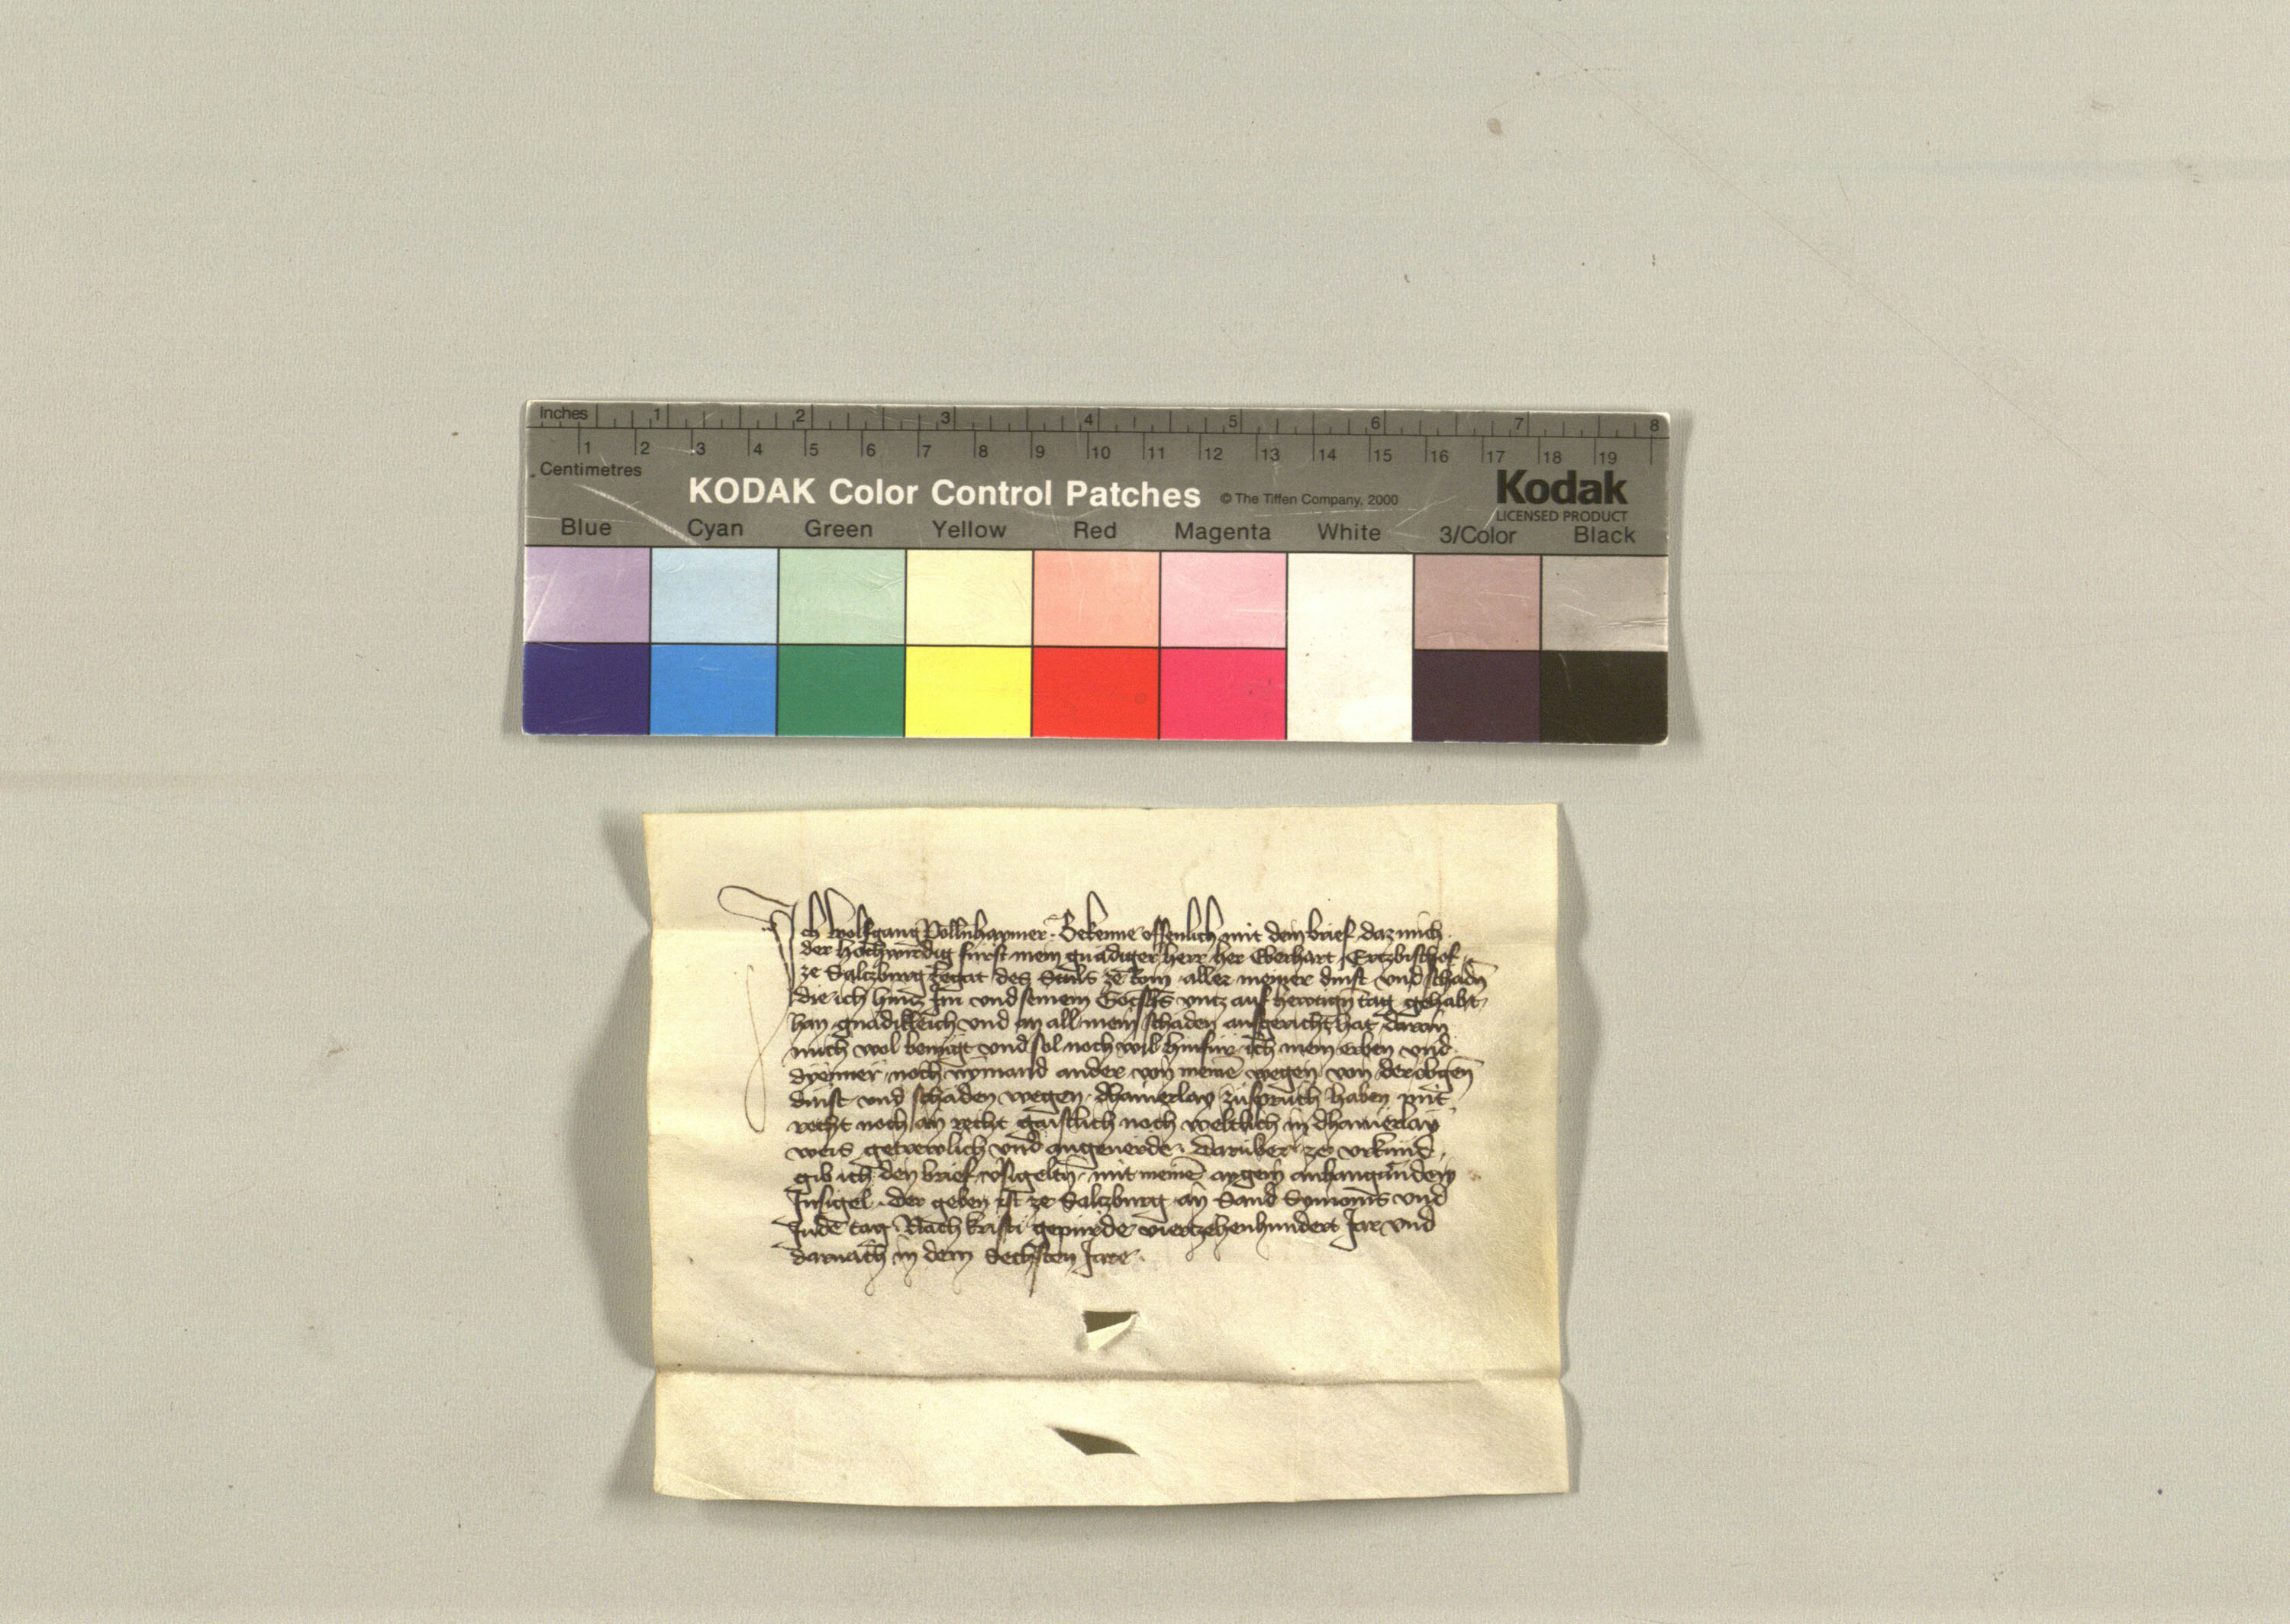 Inches 1 2 3 4 5 6 7 8
1 2 3 4 5 6 7 8 9 10 11 12 13 14 15 16 17 18 19
Centimetres
KODAK Color Control Patches © The Tiffen Company, 2000 Kodak
LICENSED PRODUCT
Blue Cyan Green Yellow Red Magenta White 3/Color Black
Ich Wolfgang Pollnhaymer Bekenne offenlich mit dem brief daz mich
der hochwirdig fürst mein gnädiger herr her Eberhart Ertzbischof
ze Salczburg Legat des Stuls ze Rom aller meiner dinst und schadn̄
die ich hincz Im und seinem Gotshs̄ vntz auf hewtign̄ tag gehabt
han gnädikleich vnd an all mein schaden ausgericht hat daran
mich wol benügt vnd sol noch wil hinfür ich mein erben vnd
dyener noch nymand ander von meinē wegen von der obgen̄
dinst vnd schäden wegen dhainerlay zuspruch haben mit
recht noch an recht gaistlich noch weltlich in dhainerlay
weis getrewlich vnd angeuerde Darüber ze vrkund
gib ich den brief v̄sigeltn̄ mit meinē aygem anhangundem
Insigel der geben ist ze Salczburg an Sand Symons vnd
Judē tag Nach kristi gepurde viertzehenhundert Jar vnd
darnach in dem Sechsten Jare